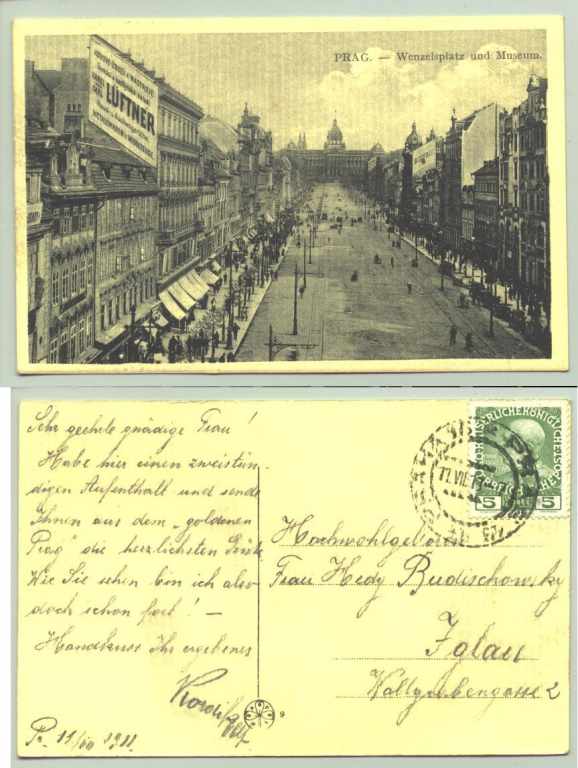 PRAG. — Wenzelsplatz und Museum.
LÜFTNER
Sehr geehrte gnädige Frau!
Habe hier einen zweistün-
digen Aufenthalt und sende
Ihnen aus dem „goldenen
Prag" die herzlichsten Grüße
Wie Sie sehen bin ich also
doch schon fort! —
Handkuss Ihr ergebenes
Pr. 11/VII 1911.
5 5
Hochwohlgeboren
Frau Hedy Budischowsky
Iglau
Wallgrabengasse 2
9